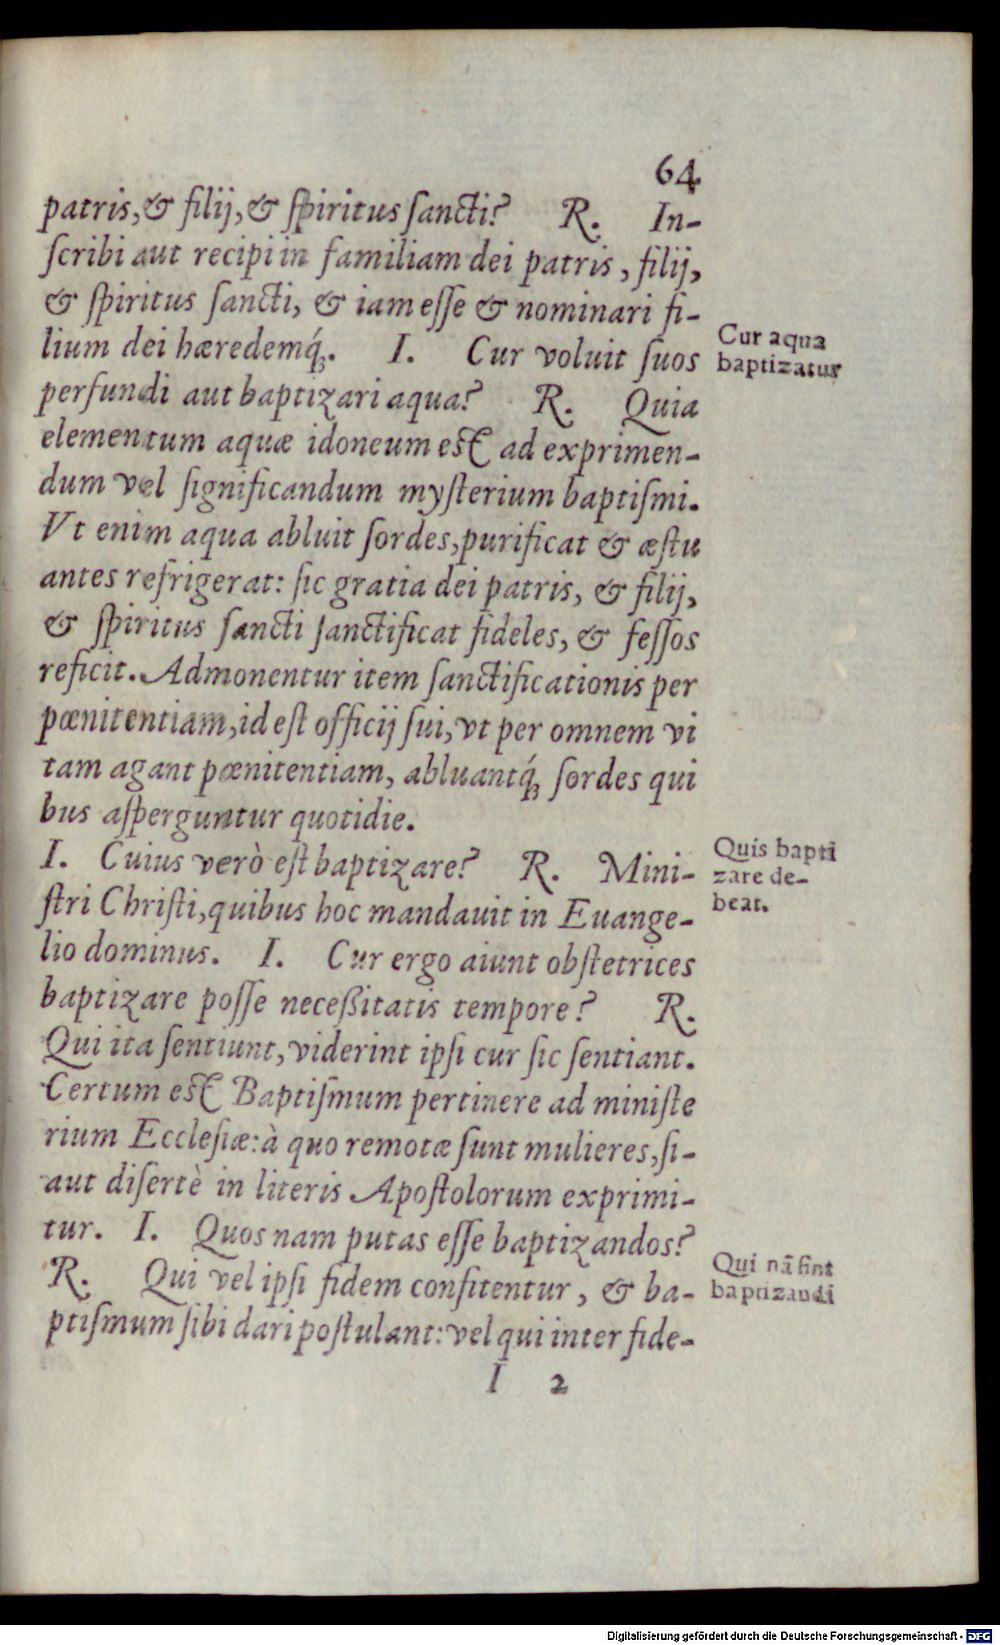 64
patris, & filij, & ſpiritus ſancti? R. In-
ſcribi aut recipi in familiam dei patris, filij,
& ſpiritus ſancti, & iam eſſe & nominari fi-
lium dei hæredemq́;. I. Cur voluit ſuos
Cur aqua
baptizatur
perfundi aut baptizari aqua? R. Quia
elementum aquæ idoneum eſt ad exprimen-
dum vel ſignificandum myſterium baptiſmi.
Vt enim aqua abluit ſordes, purificat & æſtu
antes refrigerat: ſic gratia dei patris, & filij,
& ſpiritus ſancti ſanctificat fideles, & feſſos
reficit. Admonentur item ſanctificationis per
pœnitentiam, id eſt officij ſui, vt per omnem vi
tam agant pœnitentiam, abluantq́; ſordes qui
bus aſperguntur quotidie.
I. Cuius verò eſt baptizare? R. Mini-
Quis bapti
zare de-
beat.
ſtri Chriſti, quibus hoc mandauit in Euange-
lio dominus. I. Cur ergo aiunt obſtetrices
baptizare poſſe neceßitatis tempore? R.
Qui ita ſentiunt, viderint ipſi cur ſic ſentiant.
Certum eſt Baptiſmum pertinere ad miniſte
rium Eccleſiæ: à quo remotæ ſunt mulieres, ſi-
aut diſertè in literis Apoſtolorum exprimi-
tur. I. Quos nam putas eſſe baptizandos?
R. Qui vel ipſi fidem confitentur, & ba-
Qui nã ſint
baptizandi
ptiſmum ſibi dari poſtulant: vel qui inter fide-
I 2
Digitalisierung gefördert durch die Deutsche Forschungsgemeinschaft - DFG